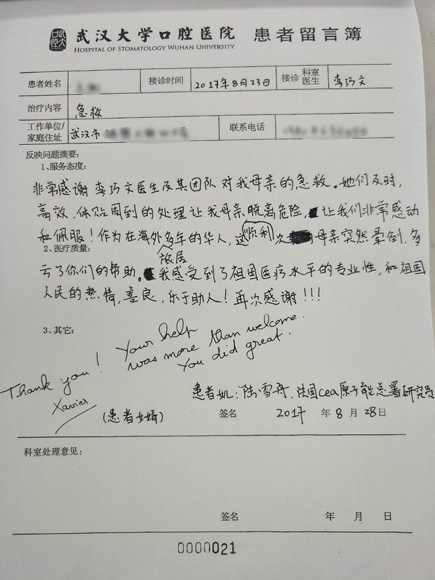 武汉大学口腔医院 患者留言簿
HOSPITAL OF STOMATOLOGY WUHAN UNIVERSITY
患者姓名 接诊时间 2017年8月23日 接诊 科室 医生 李巧文
治疗内容 急救
工作单位/家庭住址 武汉市 联系电话
反映问题摘要：
1、服务态度：
非常感谢 李巧文医生及其团队对我母亲的急救。她们及时，
高效，体贴周到的处理让我母亲脱离危险，让我们非常感动
和佩服！作为在海外多年的华人，这次母亲突然晕倒，多
旅居
2、医疗质量：
亏了你们的帮助，我感受到了祖国医疗水平的专业性，和祖国
人民的热情，善良，乐于助人！再次感谢！！！
3、其它：
Your help
was more than welcome.
You did great.
Thank you!
Xavier
(患者女婿)
患者女儿：陆雪丹，法国cea原子能总署研究员
签名 2017 年 8 月 28 日
科室处理意见：
签名 年 月 日
0000021